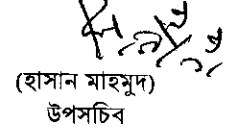 (হাসান মাহমুদ)
উপসচিব